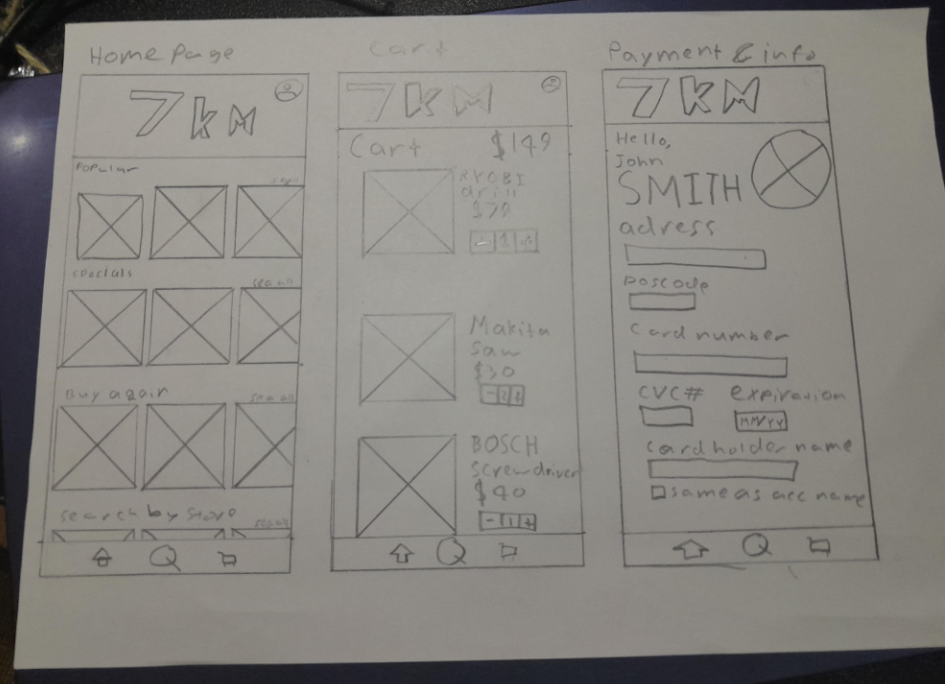 Home Page
7KM
Popular
specials
see all
Buy again
see all
search by store
see all
Cart
7KM
Cart $149
RYOBI
drill
$79
- 1 +
Makita
saw
$30
BOSCH
screwdriver
$40
- 1 +
Payment & info
7KM
Hello,
John
SMITH
adress
poscode
Card number
CVC# expiration
MM/YY
Cardholder name
same as acc name